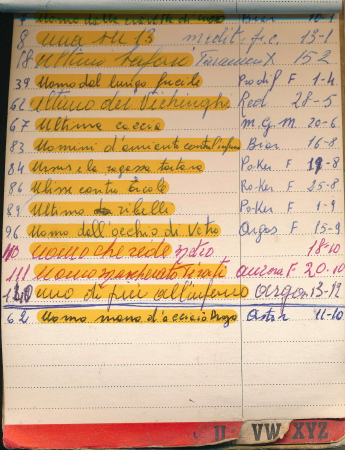 7 Uomo dalla di Bras 10-1
8 una su 13 medit. f.c. 13-1
18 Ultimo Paramount 15-2
39 Uomo dal lungo fucile Prodif F 1-4
62 Ultimo dei Vichinghi Reol 28-5
67 Ultima caccia M.G.M 20-6
83 Uomini d'amianto contro l'inferno Bras 16-8
84 Ursus e la ragazza tartara Po.Ker F 19-8
86 Ulisse contro Ercole Po.Ker F 25-8
89 Ultimo ribelle Po.Ker F 1-9
96 Uomo dall'occhio di Vetro Argos F 15-9
110 uomo che ride metro 18-10
111 Uomo mascherato aurora F 20.10
120 uno di più all'inferno argos 13-12
62 Uomo mano d'acciaio Astor 11-10
U VW XYZ